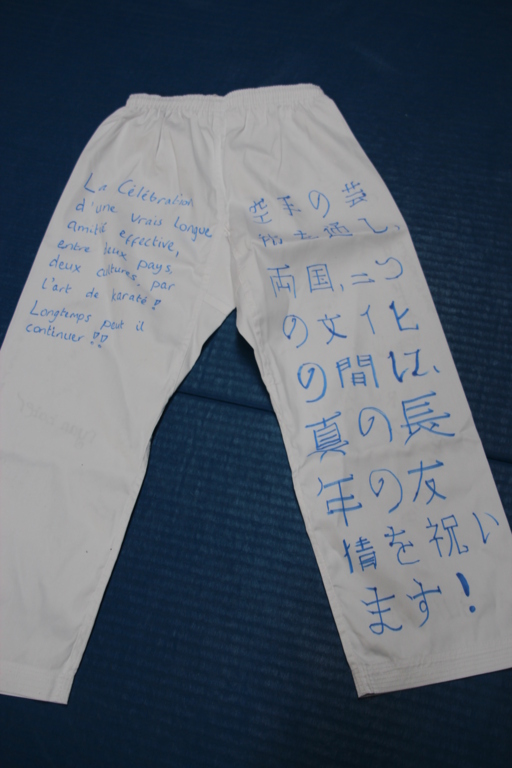 La Célébration
d'une vrais longue
amitié effective,
entre deux pays,
deux cultures, par
l'art de karaté !
Longtemps peut il
continuer !!
空手の芸
術を通し、
両国、二つ
の文化
の間に、
真の長
年の友
情を祝い
ます!